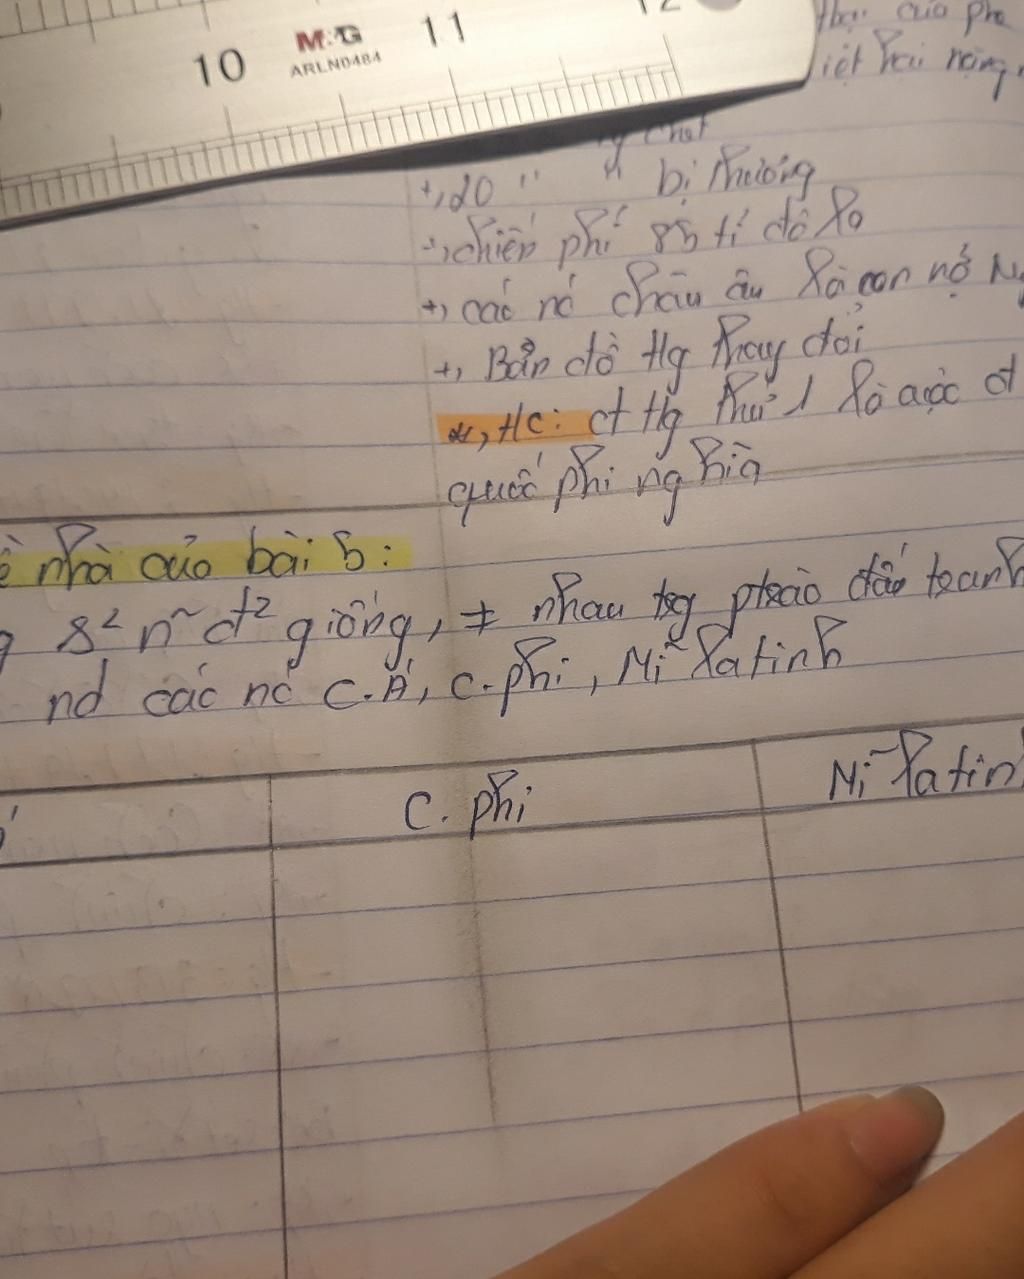 10 M&G 11 12
ARLN0484
của pho
iệt hại nặng
chết
+, 20 " " bị thương
+, chiến phí 85 tỉ đô la
+, các nc châu âu là con nợ
+, Bản đồ tg thay đổi
*, tc: ct tg thứ 1 là cuộc ct
quốc phi nghĩa
ề nhà của bài 5:
g s² n~ đ² giống, ≠ nhau tg ptrào đấu tranh
nd các nc C.Á, C.phi, Mĩ latinh
C. phi Mĩ latinh